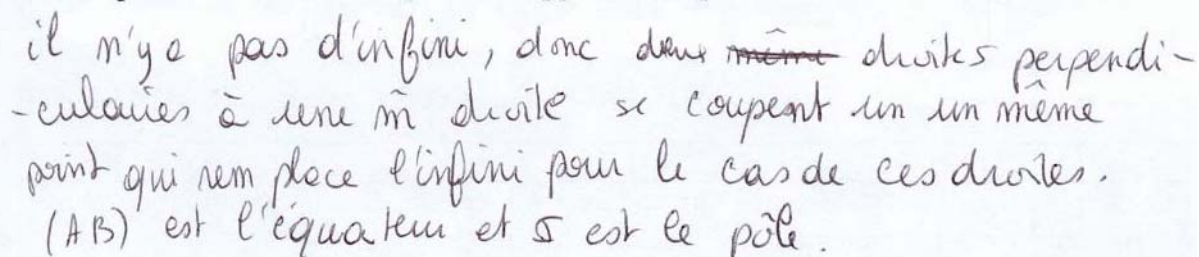 il n'y a pas d'infini, donc deux même droites perpendi-
-culaires à une m̂ droite se coupent un un même
point qui remplace l'infini pour le cas de ces droites.
(AB) est l'équateur et S est le pôle.